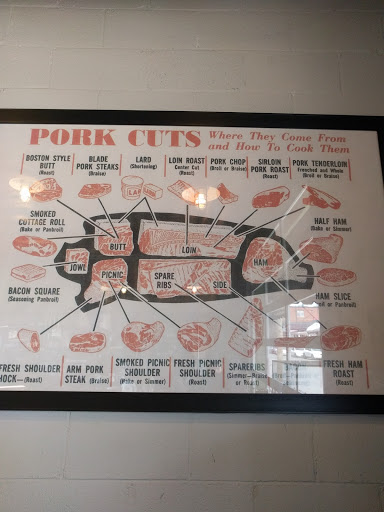 PORK CUTS
Where They Come From
and How To Cook Them
BOSTON STYLE
BUTT
(Roast)
BLADE
PORK STEAKS
(Braise)
LARD
(Shortening)
LOIN ROAST
Center Cut
(Roast)
PORK CHOP
(Broil or Braise)
SIRLOIN
PORK ROAST
(Roast)
PORK TENDERLOIN
Frenched and Whole
(Broil or Braise)
LARD
SMOKED
COTTAGE ROLL
(Bake or Panbroil)
HALF HAM
(Bake or Simmer)
BUTT
LOIN
JOWL
PICNIC
SPARE
RIBS
SIDE
HAM
BACON SQUARE
(Seasoning Panbroil)
HAM SLICE
(Broil or Panbroil)
FRESH SHOULDER
HOCK—(Roast)
ARM PORK
STEAK (Braise)
SMOKED PICNIC
SHOULDER
(Bake or Simmer)
FRESH PICNIC
SHOULDER
(Roast)
SPARERIBS
(Simmer—Braise
or Roast)
FRESH HAM
ROAST
(Roast)